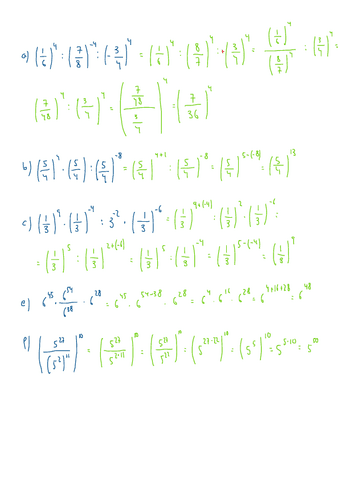 a) (1/6)^4 : (7/8)^-4 : (-3/4)^4 = (1/6)^4 : (8/7)^4 : (3/4)^4 = (1/6)^4 / (8/7)^4 : (3/4)^4 =
(7/48)^4 : (3/4)^4 = ((7/48) / (3/4))^4 = (7/36)^4
b) (5/4)^4 · (5/4) : (5/4)^-8 = (5/4)^4+1 : (5/4)^-8 = (5/4)^5-(-8) = (5/4)^13
c) (1/3)^9 · (1/3)^-4 : 3^-2 · (1/3)^-6 = (1/3)^9+(-4) : (1/3)^2 · (1/3)^-6 =
= (1/3)^5 : (1/3)^2+(-6) = (1/3)^5 : (1/3)^-4 = (1/3)^5-(-4) = (1/3)^9
e) 6^45 · 6^54 / 6^38 · 6^28 = 6^45 · 6^54-38 · 6^28 = 6^4 · 6^16 · 6^28 = 6^4+16+28 = 6^48
f) (5^27 / (5^2)^11)^10 = (5^27 / 5^2·11)^10 = (5^27 / 5^22)^10 = (5^27-22)^10 = (5^5)^10 = 5^5·10 = 5^50